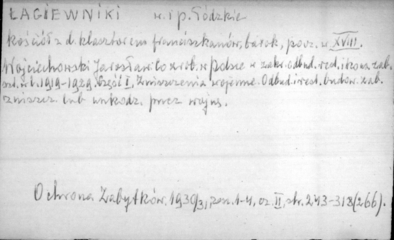 ŁAGIEWNIKI w. i p. Łódzkie
Kościół z d. klasztorem franciszkanów, barok, pocz. w. XVIII.
Wojciechowski Jarosław: Co zrob. w Polsce w zakr. odbud. rest. i kons. zab.
od r. 1919-1929. Część I, Zniszczenia wojenne. Odbud. i rest. budow. zab.
zniszcz. lub uszkodz. przez wojnę.
Ochrona Zabytków. 1930/31, zesz. 1-4, cz. II, str. 243-318 (266).